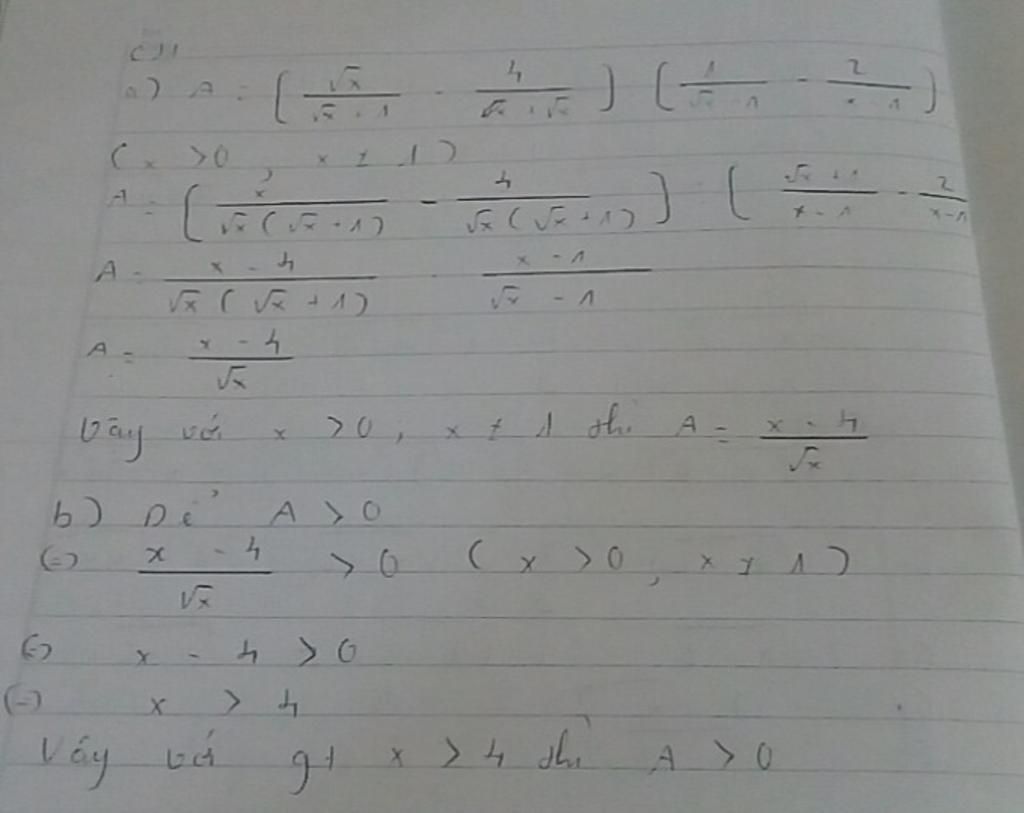 C11
a) A = ( √x / (√x + 1) - 4 / (x + √x) ) : ( 1 / (√x - 1) - 2 / (x - 1) )
( x > 0 , x ≠ 1 )
A = [ x / (√x ( √x + 1 )) - 4 / (√x ( √x + 1 )) ] : [ (√x + 1) / (x - 1) - 2 / (x - 1) ]
A = (x - 4) / (√x ( √x + 1 )) · (x - 1) / (√x - 1)
A = (x - 4) / √x
Vậy với x > 0 , x ≠ 1 thì A = (x - 4) / √x
b) Để A > 0
(=) (x - 4) / √x > 0 ( x > 0 , x ≠ 1 )
(=) x - 4 > 0
(=) x > 4
Vậy với gt x > 4 thì A > 0